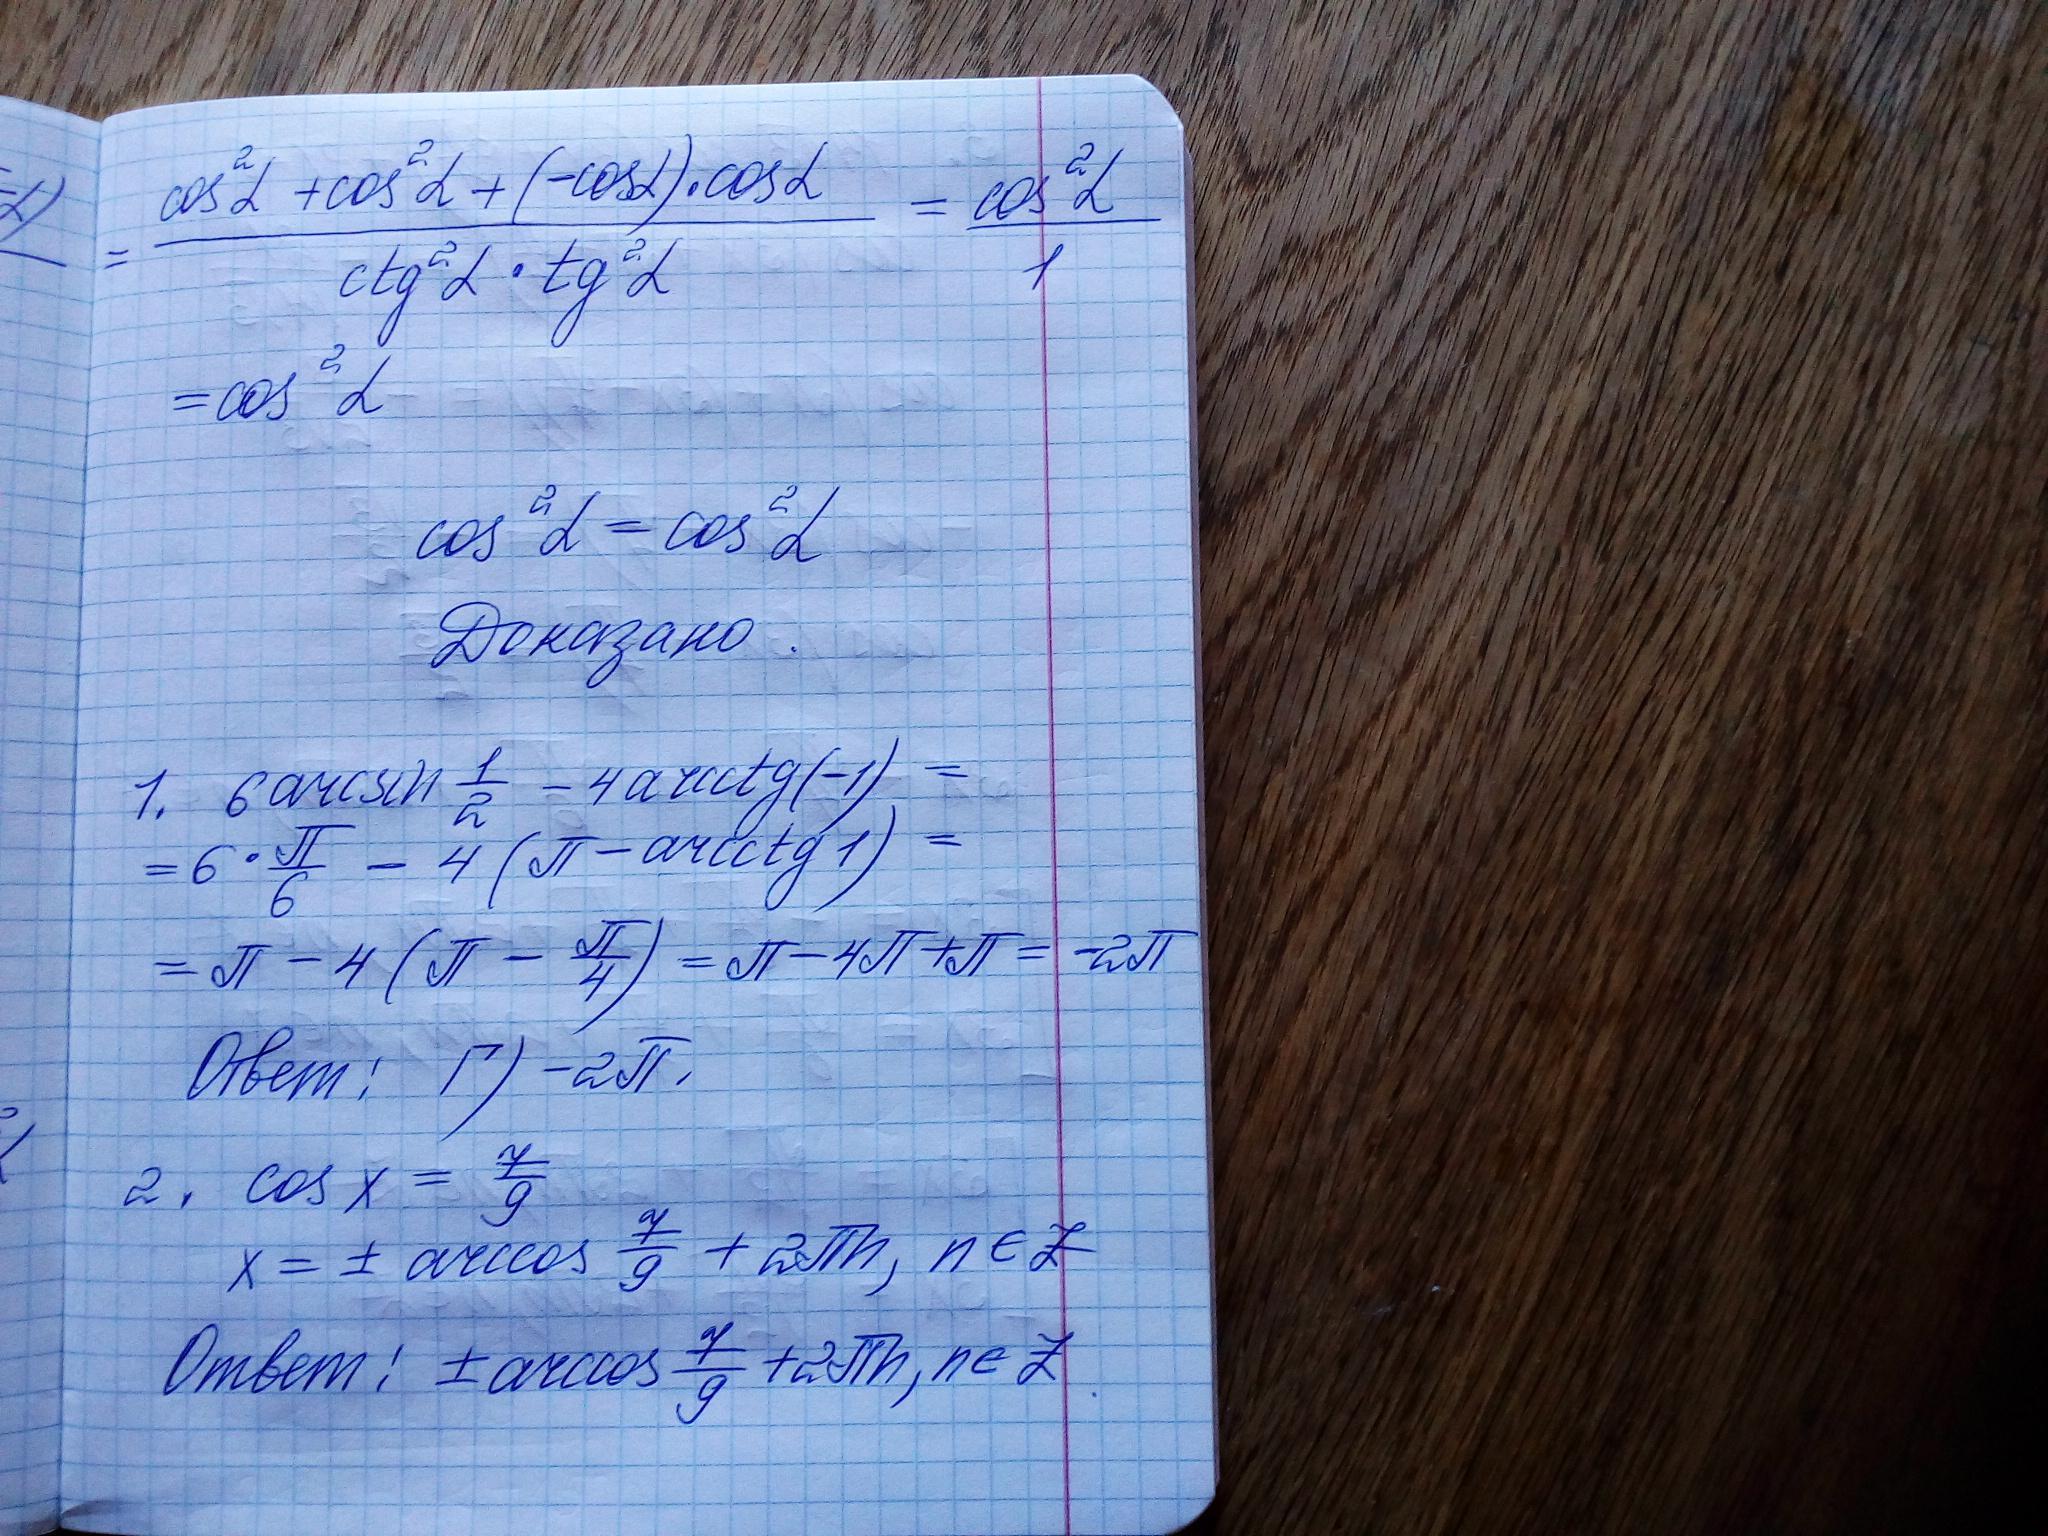 = (cos²α + cos²α + (-cosα)·cosα) / (ctg²α · tg²α) = cos²α / 1
= cos²α
cos²α = cos²α
Доказано.
1. 6 arcsin 1/2 - 4 arcctg(-1) =
= 6 · π/6 - 4 (π - arcctg 1) =
= π - 4 (π - π/4) = π - 4π + π = -2π
Ответ: Г) -2π.
2. cos x = 7/9
x = ± arccos 7/9 + 2πn, n ∈ Z
Ответ: ± arccos 7/9 + 2πn, n ∈ Z.